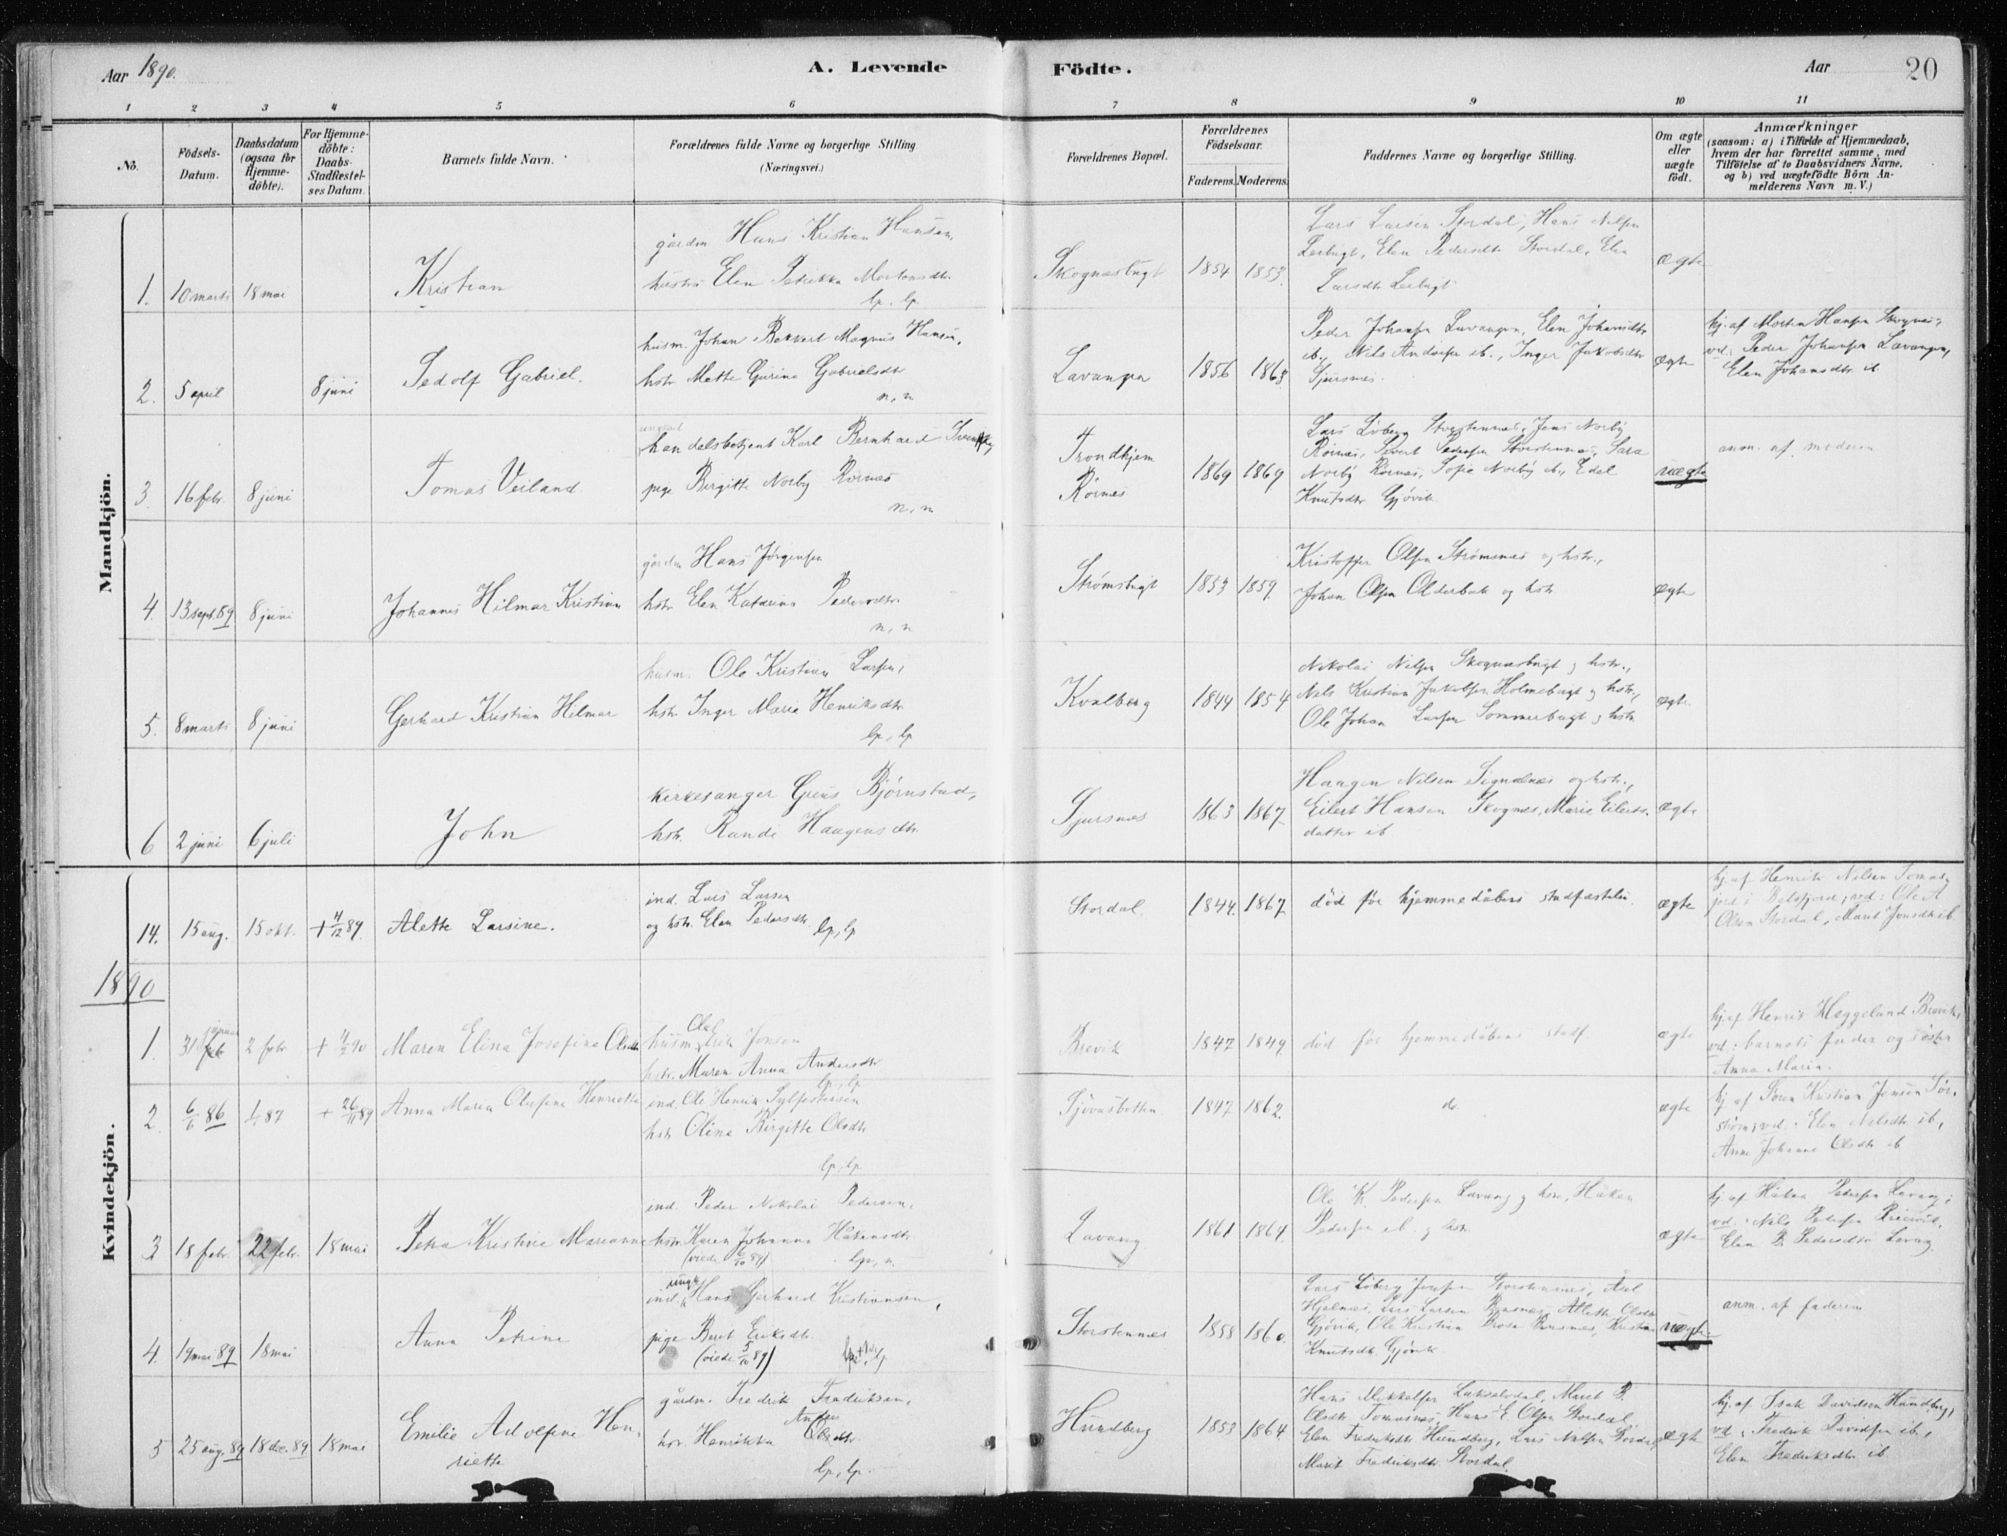 Aar 1890.
A. Levende
Födte.
Aar
20
1 2 3 4 5 6 7 8 9 10 11
No.
Födsels-
Datum.
Daabsdatum
(ogsaa for
Hjemme-
döbte).
For Hjemme-
döbte:
Daabs-
Stadfæstel-
ses Datum.
Barnets fulde Navn.
Forældrenes fulde Navne og borgerlige Stilling
(Næringsvei.)
Forældrenes Bopæl.
Forældrenes
Födselsaar.
Faderens.
Moderens.
Faddernes Navne og borgerlige Stilling.
Om ægte
eller
uægte
födt.
Anmærkninger
(saasom: a) i Tilfælde af Hjemmedaab,
hvem der har forrettet samme, med
Tilföielse af to Daabsvidners Navne,
og b) ved uægtefödte Börn An-
melderens Navn m. V.)
Mandkjön.
1. 10 marts 18 mai
Kristian
gårdm. Hans Kristian Hansen,
hustru Elen Petrikka Mortensdtr.
lp. lp.
Skognesbugt 1854 1853.
Lars Larsen Stordal, Hans Nilsen
Leirbugt, Elen Pedersdtr Stordal, Elen
Larsdtr Leirbugt
ægte
2. 5 april 8 juni
Pedolf Gabriel.
husm. Johan Bekkert Magnus Hansen,
hstr. Mette Gurine Gabrielsdtr
n, n
Lavangen 1856 1863.
Peder Johansen Lavangen, Elen Johansdtr
ib., Nils Andersen ib., Inger Jakobsdtr
Sjursnes.
ægte
hj. af Morten Hansen Skognes,
vd: Peder Johansen Lavangen,
Elen Johansdtr. ib
3. 16 febr. 8 juni
Tomas Veiland.
ungkarl
handelsbetjent Karl Bernhard
pige Birgitte Norby Rörnes
n, n
Trondhjem
Rörnes
1869 1869
Lars Löberg Storstennes, Jens Norby
Rörnes, Sivert Pedersen Storstennes, Sara
Norby Rörnes, Sofie Norby ib., Edel
Knutsdtr Gjövik
uægte
anm. af moderen
4. 13 sept. 89. 8 juni
Johannes Hilmar Kristian
gårdm. Hans Jörgensen
hstr. Elen Katarina Pedersdtr.
n, n
Strömsbugt 1853 1859.
Kristoffer Olsen Strömsnes og hstr.,
Johan Olsen Olderbak og hstr
ægte
5. 8 marts 8 juni
Gerhard Kristian Hilmar
husm. Ole Kristian Larsen,
hstr. Inger Maria Henriksdtr.
lp, lp
Kvalberg 1844 1854
Nikolai Nilsen Skognesbugt og hstr.,
Nils Kristian Jakobsen Holmebugt og hstr.,
Ole Johan Larsen Sommerbugt og hstr
ægte.
6 2 juni 6 juli
John
kirkesanger Grens Bjørnstad,
hstr. Randi Haagensdtr.
Sjursnes 1863 1867
Haagen Nilsen Signalnes og hstr.,
Eilert Hansen Skognes, Marie Eilerts-
datter ib
ægte
Kvindekjön.
14. 15 aug. 15 okt. + 4/12 89.
Alette Larsine.
ind. Lars Larsen
og hstr. Elen Pedersdtr
lp, lp
Stordal. 1844. 1867.
död för hjemmedåbens stadfæstelse.
ægte
hj. af Henrik Nilsen Tomas-
jord i Balsfjord; vd: Ole A
Olsen Stordal, Marit Jonsdtr ib.
1890
1. 31 januar 2 febr + 4/2 90
Maren Elina Josefine Olsdtr
husm. Olal Erik Jonsen
hstr. Maren Anna Andersdtr
lp, lp
Brevik 1847 1849.
död för hjemmedåbens stadf.
ægte
hj. af Henrik Hæggeland Brevik,
vd: barnets fader og söster
Anna Maria.
2. 6/6 86 1/1 87 + 26/11 89
Anna Maria Olufine Henriette
ind. Ole Henrik Sylfestersen
hstr Olina Birgitte Olsdtr
lp, lp
Sjövasbotten 1847. 1862.
do.
ægte
hj. af Sören Kristian Jensen Sör-
ström; vd: Elen Nilsdtr ib,
Anne Johanne Olsdtr ib
3 18 febr. 22 febr. 18 mai
Petra Kristine Marianne
ind. Peder Nikolai Pedersen,
hstr. Karen Johanna Håkensdtr.
(viede 6/10 89)
lp, n.
Lavang 1861 1864.
Ole K. Pedersen Lavang og hstr, Håken
Pedersen ib. og hstr
ægte
hj. af Håken Pedersen Lavang;
vd.: Nils Pedersen
Elen B. Pedersdtr Lavang.
4. 19 mai 89 18 mai
Anna Petrine
ungk.
ind. Hans Gerhard Kristiansen,
pige Berit Eriksdtr.
(viede 5/10 89)
Storstennes 1858 1860.
Lars Löberg Storstennes,
Hjelmes, Lars Larsen Ramnes, Alette Olsdtr
Gjövik, Ole Kristian Ramnes, Kristian
Knutsdtr. Gjövik
uægte
anm. af faderen
5 25 aug. 89 18 dec. 89 18 mai
Emilie Adolfine Hen-
riette
gårdm. Fredrik Fredriksen,
hstr. Henrikka Andrea Olsdtr.
lp, lp.
Hundberg 1853 1864.
Hans Mikkelsen Lakselvdal, Maret B.
Olsdtr Tomasnes, Hans E. Olsen Stordal,
Elen Fredriksdtr Hundberg, Lars Nilsen Stordal,
Marit Fredriksdtr Stordal.
ægte
hj. af Isak Davidsen Hundberg,
vd.: Fredrik Davidsen ib.,
Elen Fredriksdtr ib.